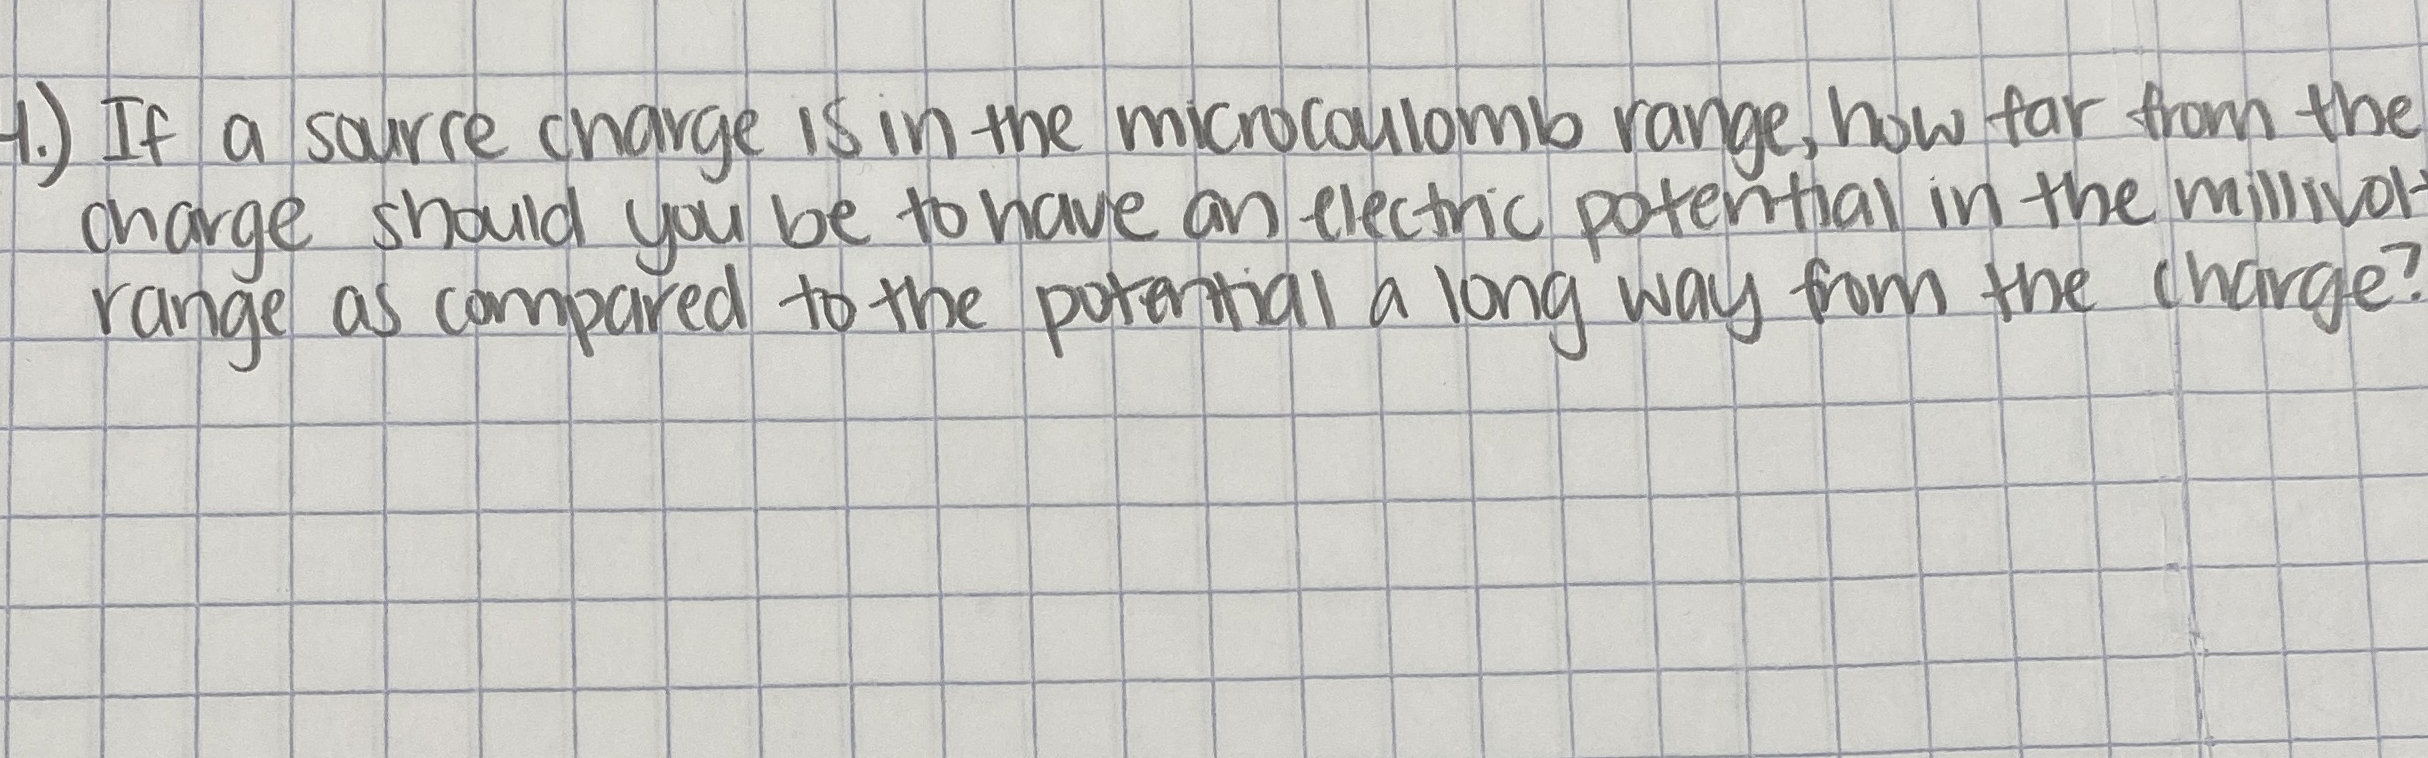 1.) If a source charge is in the microcoulomb range, how far from the
charge should you be to have an electric potential in the millivolt
range as compared to the potential a long way from the charge?